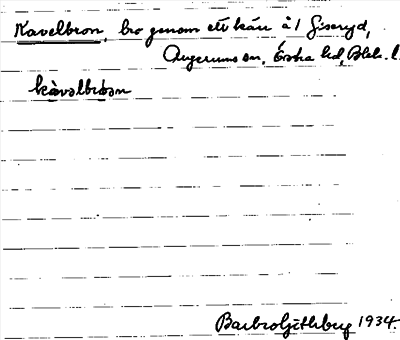 Kavelbron, bro genom ett kärr å / Giseryd,
Augerums sn, Östra hd, Blek. l.
kàvəlbròən
Barbro Güthberg 1934.